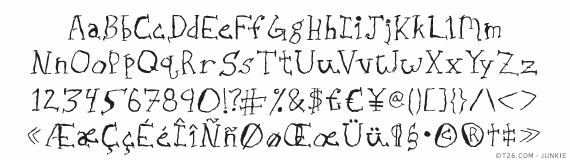 AaBbCcDdEeFfGgHhIiJjKkLlMm
NnOoPpQqRrSsTtUuVvWwXxYyZz
1234567890!?#%&$£€¥@()[]{}/\<>
«ÆæÇçÉéÎîÑñØøŒœÜü¶§•©®†‡»
© T26.COM - JUNKIE